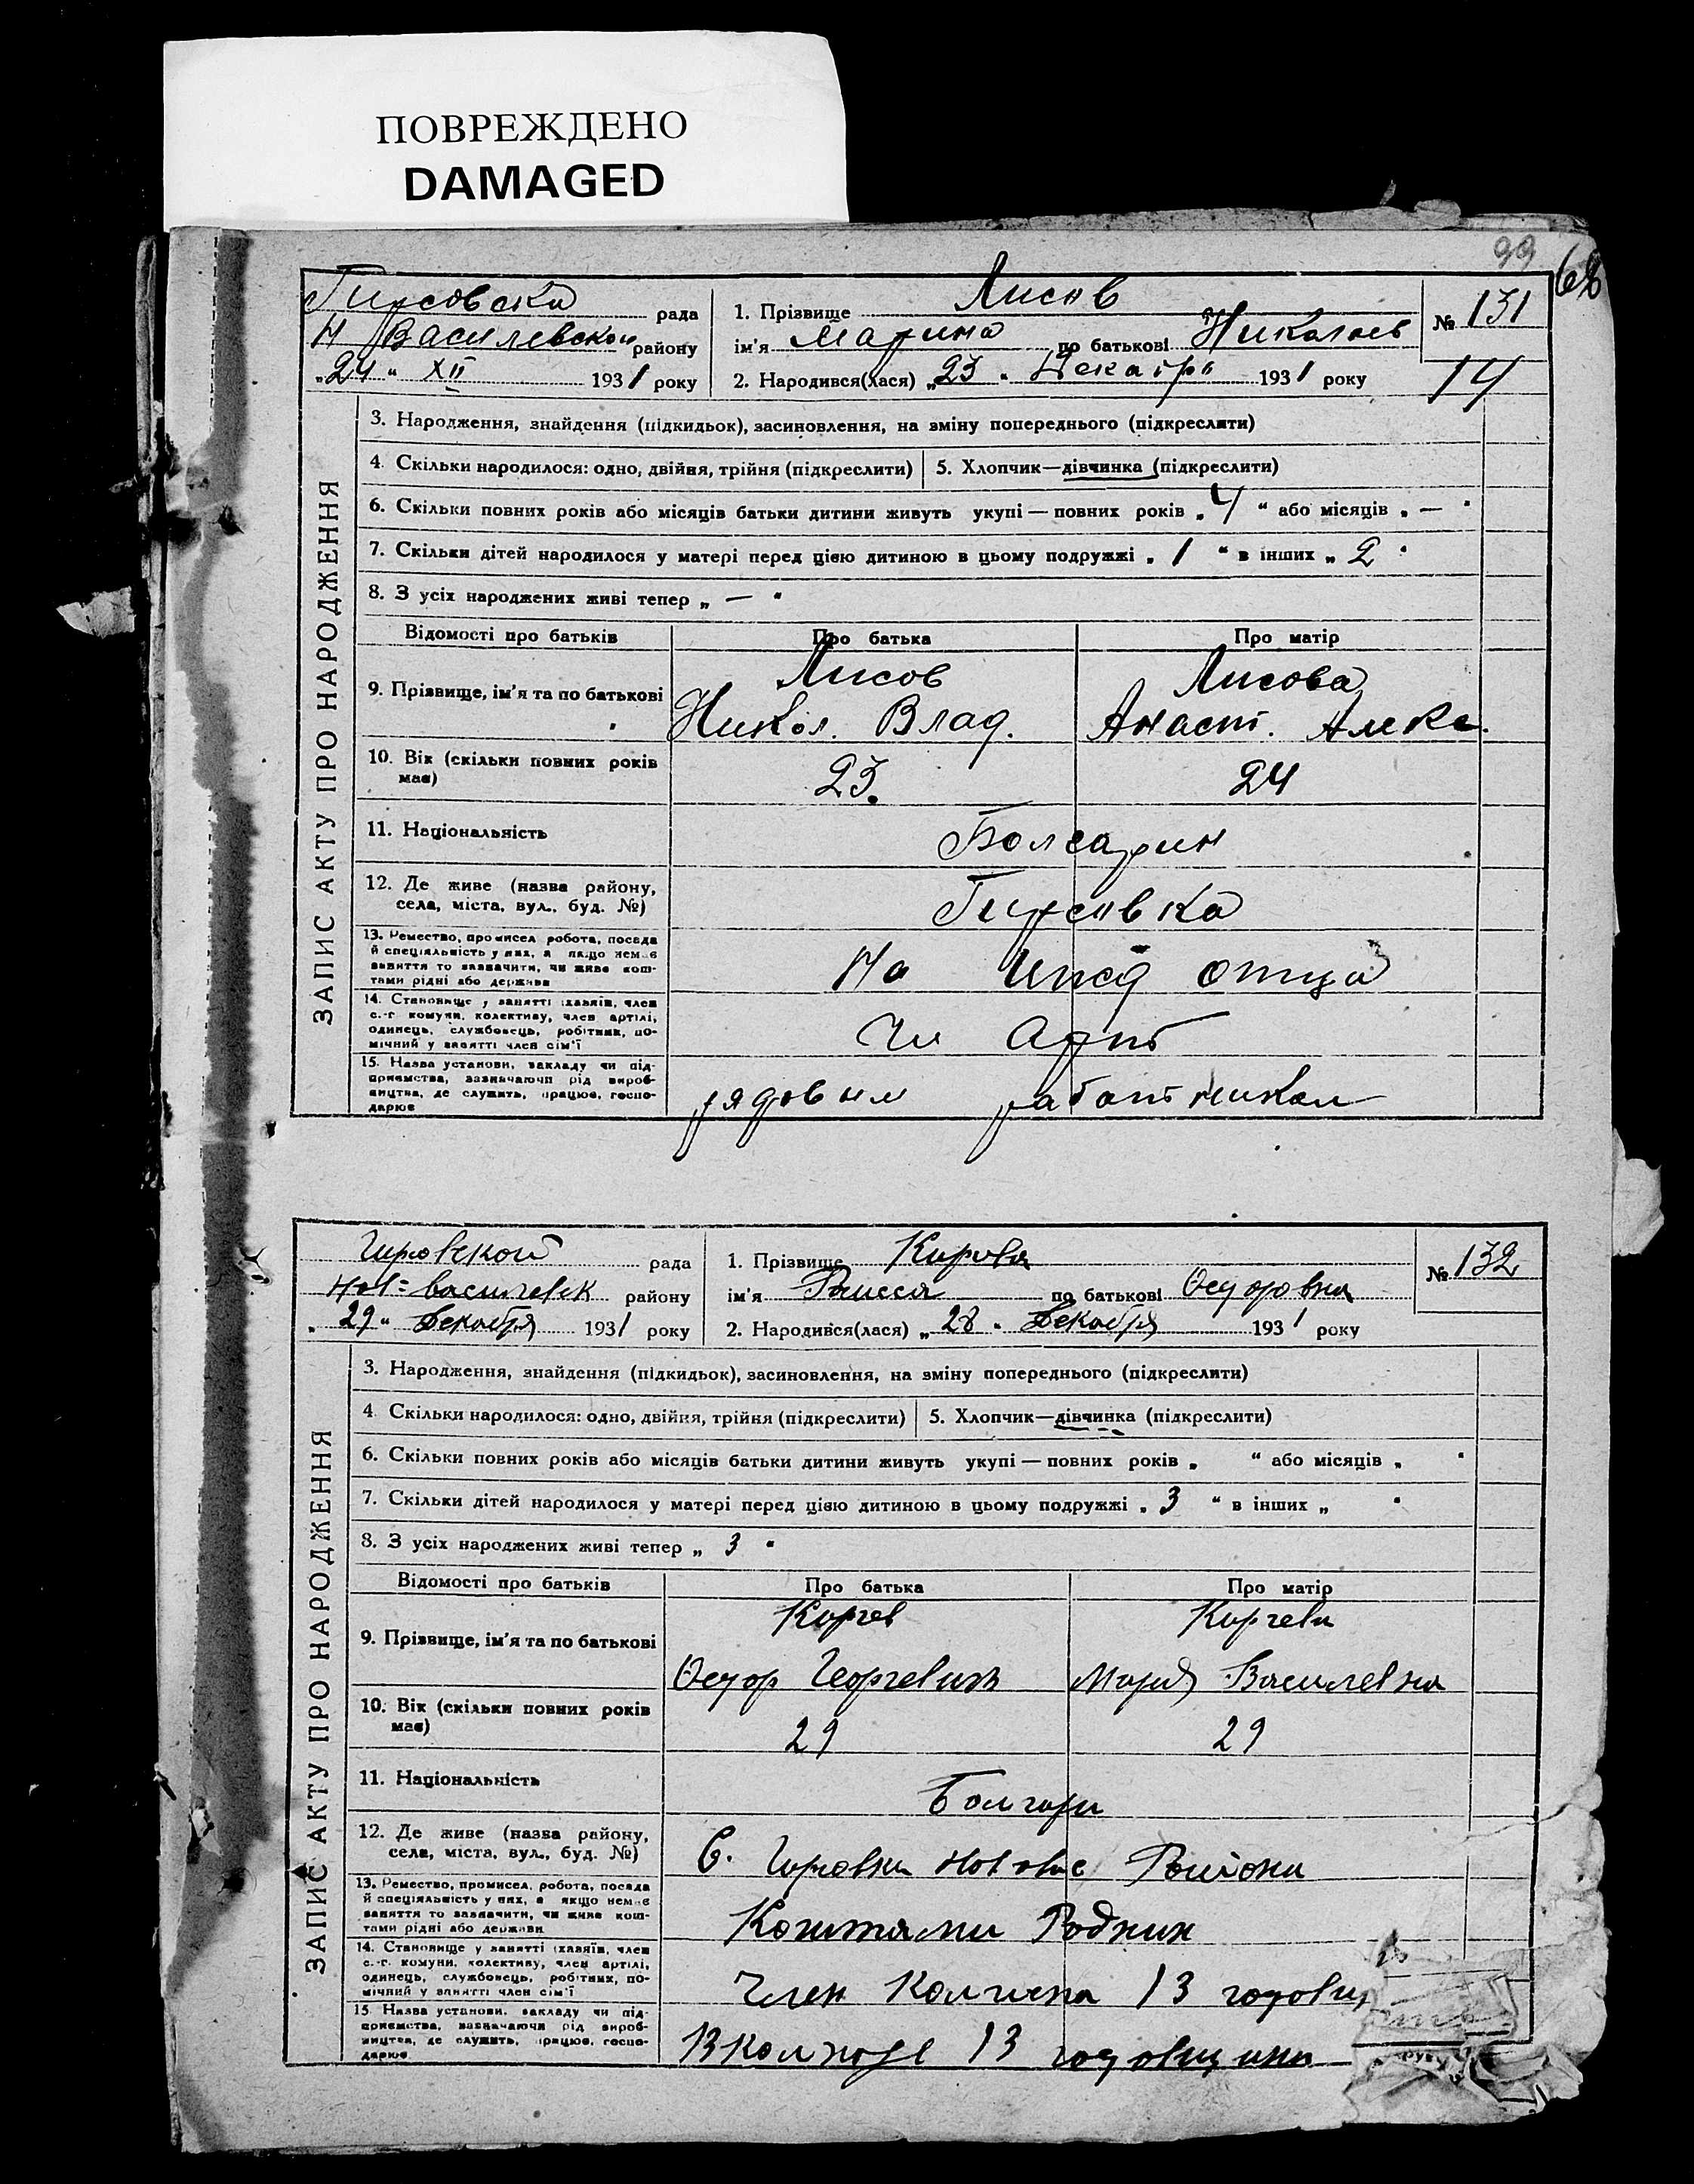 ПОВРЕЖДЕНО
DAMAGED
99
68
Гирсовска рада
Н Василевскои району
„24“ XII 1931 року
1. Прізвище Лисов
ім'я Марина по батькові Николаев
2. Народився(лася) „23“ Декабря 1931 року
№ 131
14
ЗАПИС АКТУ ПРО НАРОДЖЕННЯ
3. Народження, знайдення (підкидьок), засиновлення, на зміну попереднього (підкреслити)
4. Скільки народилося: одно, двійня, трійня (підкреслити) 5. Хлопчик—дівчинка (підкреслити)
6. Скільки повних років або місяців батьки дитини живуть укупі — повних років „4“ або місяців „—“
7. Скільки дітей народилося у матері перед цією дитиною в цьому подружжі „1“ в інших „2“
8. З усіх народжених живі тепер „—“
Відомості про батьків Про батька Про матір
9. Прізвище, ім'я та по батькові
Лисов Лисова
Никол. Влад. Анаст. Алекс.
10. Вік (скільки повних років має) 23. 24
11. Національність Болгарин
12. Де живе (назва району, села, міста, вул., буд. №) Гирсовка
13. Ремество, промисел робота, посада й спеціяльність у них, а якщо немає заняття то зазначити, чи живе коштами рідні або держави
На ижд отца
14. Становище у занятті (хазяїн, член с.-г. комуни, колективу, член артілі, одинець, службовець, робітник, помічний у занятті член сім'ї
Чл Арт
15. Назва установи, закладу чи підприємства, зазначаючи рід виробництва, де служить, працює, господарює
рядовым работником
Гирсовской рада
Нов-василевск району
„29“ Декабря 1931 року
1. Прізвище
ім'я Раисся по батькові Федоровна
2. Народився(лася) „28“ Декабря 1931 року
№ 132
ЗАПИС АКТУ ПРО НАРОДЖЕННЯ
3. Народження, знайдення (підкидьок), засиновлення, на зміну попереднього (підкреслити)
4. Скільки народилося: одно, двійня, трійня (підкреслити) 5. Хлопчик—дівчинка (підкреслити)
6. Скільки повних років або місяців батьки дитини живуть укупі — повних років „ “ або місяців „ “
7. Скільки дітей народилося у матері перед цією дитиною в цьому подружжі „3“ в інших „ “
8. З усіх народжених живі тепер „3“
Відомості про батьків Про батька Про матір
9. Прізвище, ім'я та по батькові
Киргев Киргева
Федор Георгевич Мария Василевна
10. Вік (скільки повних років має) 29 29
11. Національність Болгари
12. Де живе (назва району, села, міста, вул., буд. №) С. Гирсовка Района
13. Ремество, промисел, робота, посада й спеціяльність у них, а якщо немає заняття то зазначити, чи живе коштами рідні або держави
Коштами Родних
14. Становище у занятті (хазяїн, член с.-г. комуни, колективу, член артілі, одинець, службовець, робітник, помічний у занятті член сім'ї
Член Колгоспа 13 годовщ
15. Назва установи, закладу чи підприємства, зазначаючи рід виробництва, де служить, працює, господарює
В колхозе 13 годовщина